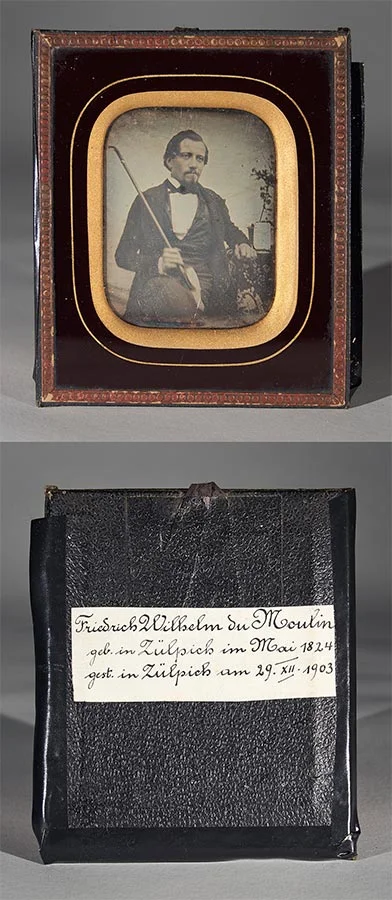 Friedrich Wilhelm du Moulin
geb. in Zülpich im Mai 1824
gest. in Zülpich am 29. XII. 1903